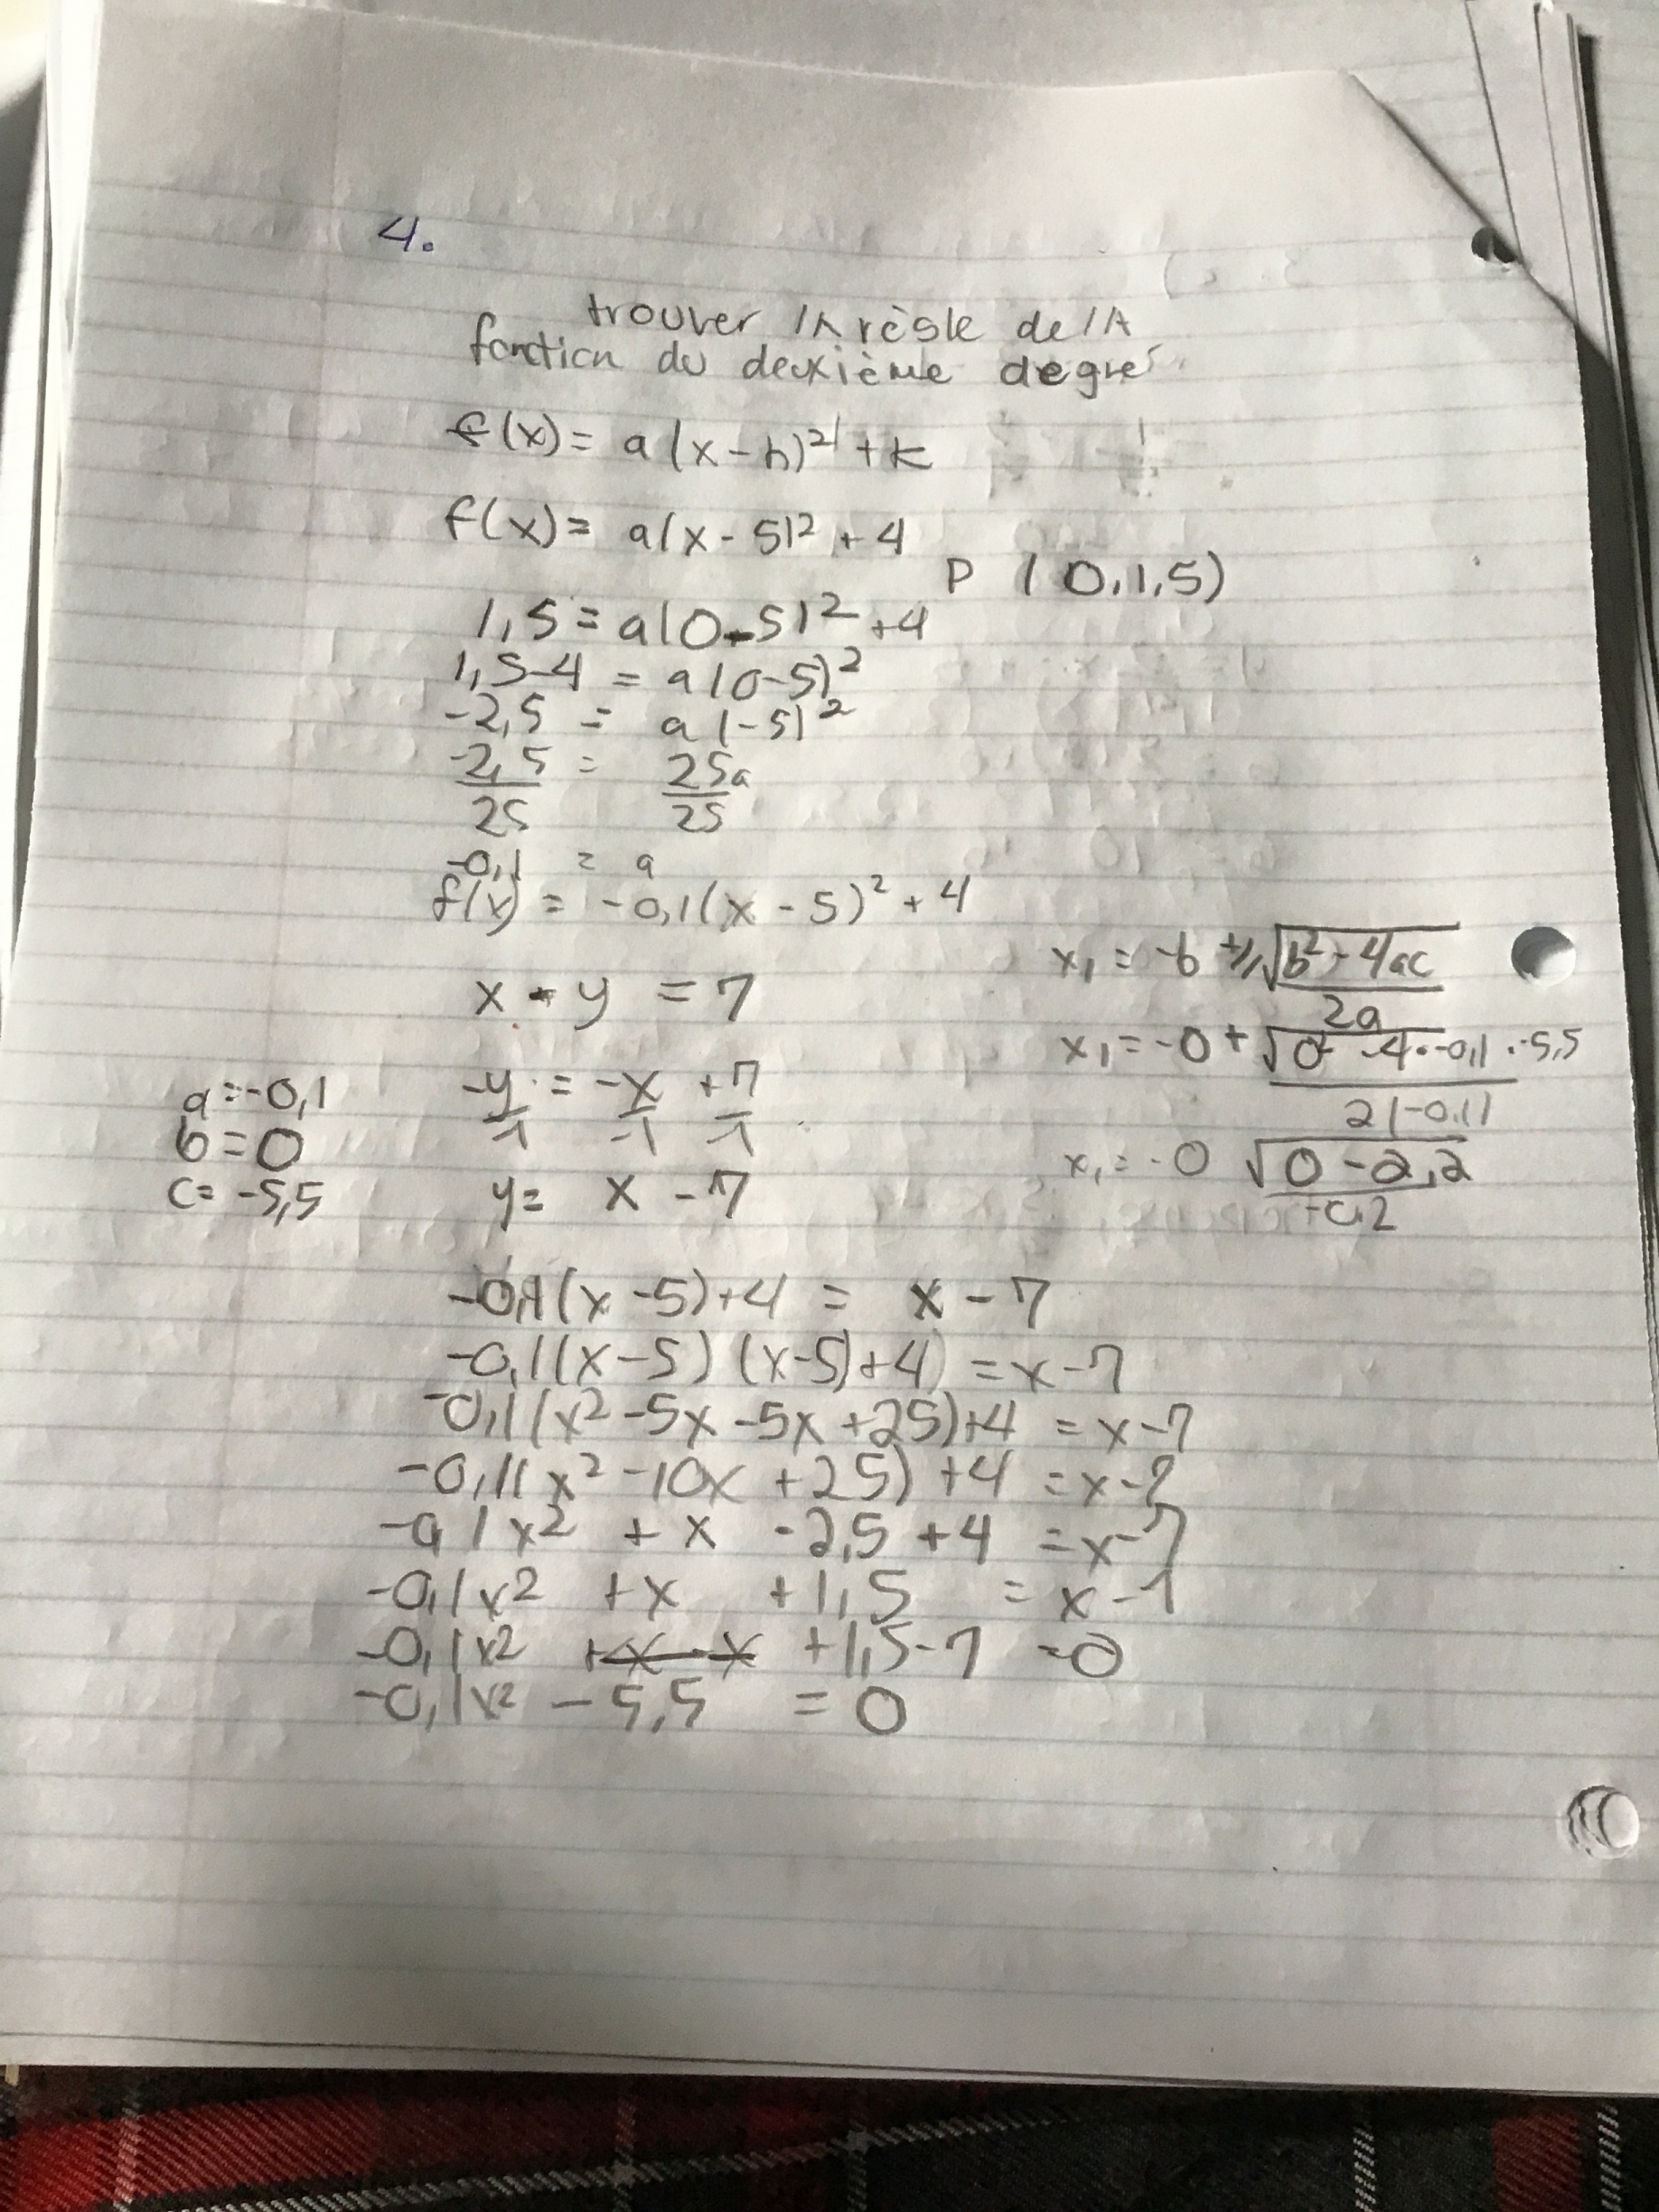 4.
trouver lA règle de lA
fonction du deuxième degré
f(x) = a(x-h)² + k
f(x) = a(x - 5)² + 4
P (0,1,5)
1,5 = a(0-5)² +4
1,5-4 = a(0-5)²
-2,5 = a(-5)²
-2,5 = 25a
25 25
-0,1 = a
f(x) = -0,1(x - 5)² + 4
x - y = 7
-y = -x +7
-1 -1 -1
y = x - 7
a = -0,1
b = 0
c = -5,5
x₁ = -b +/- √b² - 4ac
2a
x₁ = -0 + √0² -4·-0,1·-5,5
2(-0,1)
x₁ = -0 √0 - 2,2
-0,2
-0,1(x -5)+4 = x - 7
-0,1(x-5) (x-5)+4) = x-7
-0,1(x² -5x -5x +25)+4 = x-7
-0,1(x² -10x +25) +4 = x-7
-0,1x² + x -2,5 +4 = x-7
-0,1x² +x +1,5 = x-7
-0,1x² +x -x +1,5-7 =0
-0,1x² - 5,5 = 0